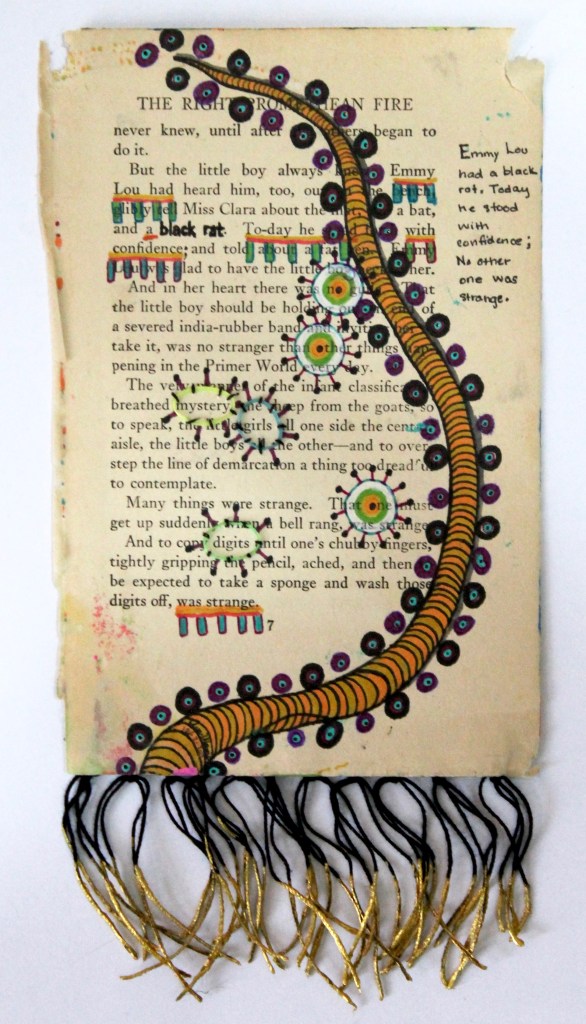 THE RIGHT PROMETHEAN FIRE
never knew, until after others began to
do it.
But the little boy always Emmy
Lou had heard him, too, the bench,
glibly tell Miss Clara about the mat, a bat,
and a black rat. To-day he stood with
confidence and told about a fat hen. Emmy
Lou was glad to have the little boy her.
And in her heart there was no That
the little boy should be holding out of
a severed india-rubber band and inviting her to
take it, was no stranger than other things hap-
pening in the Primer World every day.
The very of the infant classification
breathed mystery, the sheep from the goats, so
to speak, the little girls all one side the central
aisle, the little boys all the other—and to over-
step the line of demarcation a thing too dreadful
to contemplate.
Many things were strange. That one must
get up suddenly when a bell rang, was strange.
And to copy digits until one's chubby fingers,
tightly gripping the pencil, ached, and then to
be expected to take a sponge and wash those
digits off, was strange.
7
Emmy Lou
had a black
rat. Today
he stood
with
confidence;
No other
one was
strange.